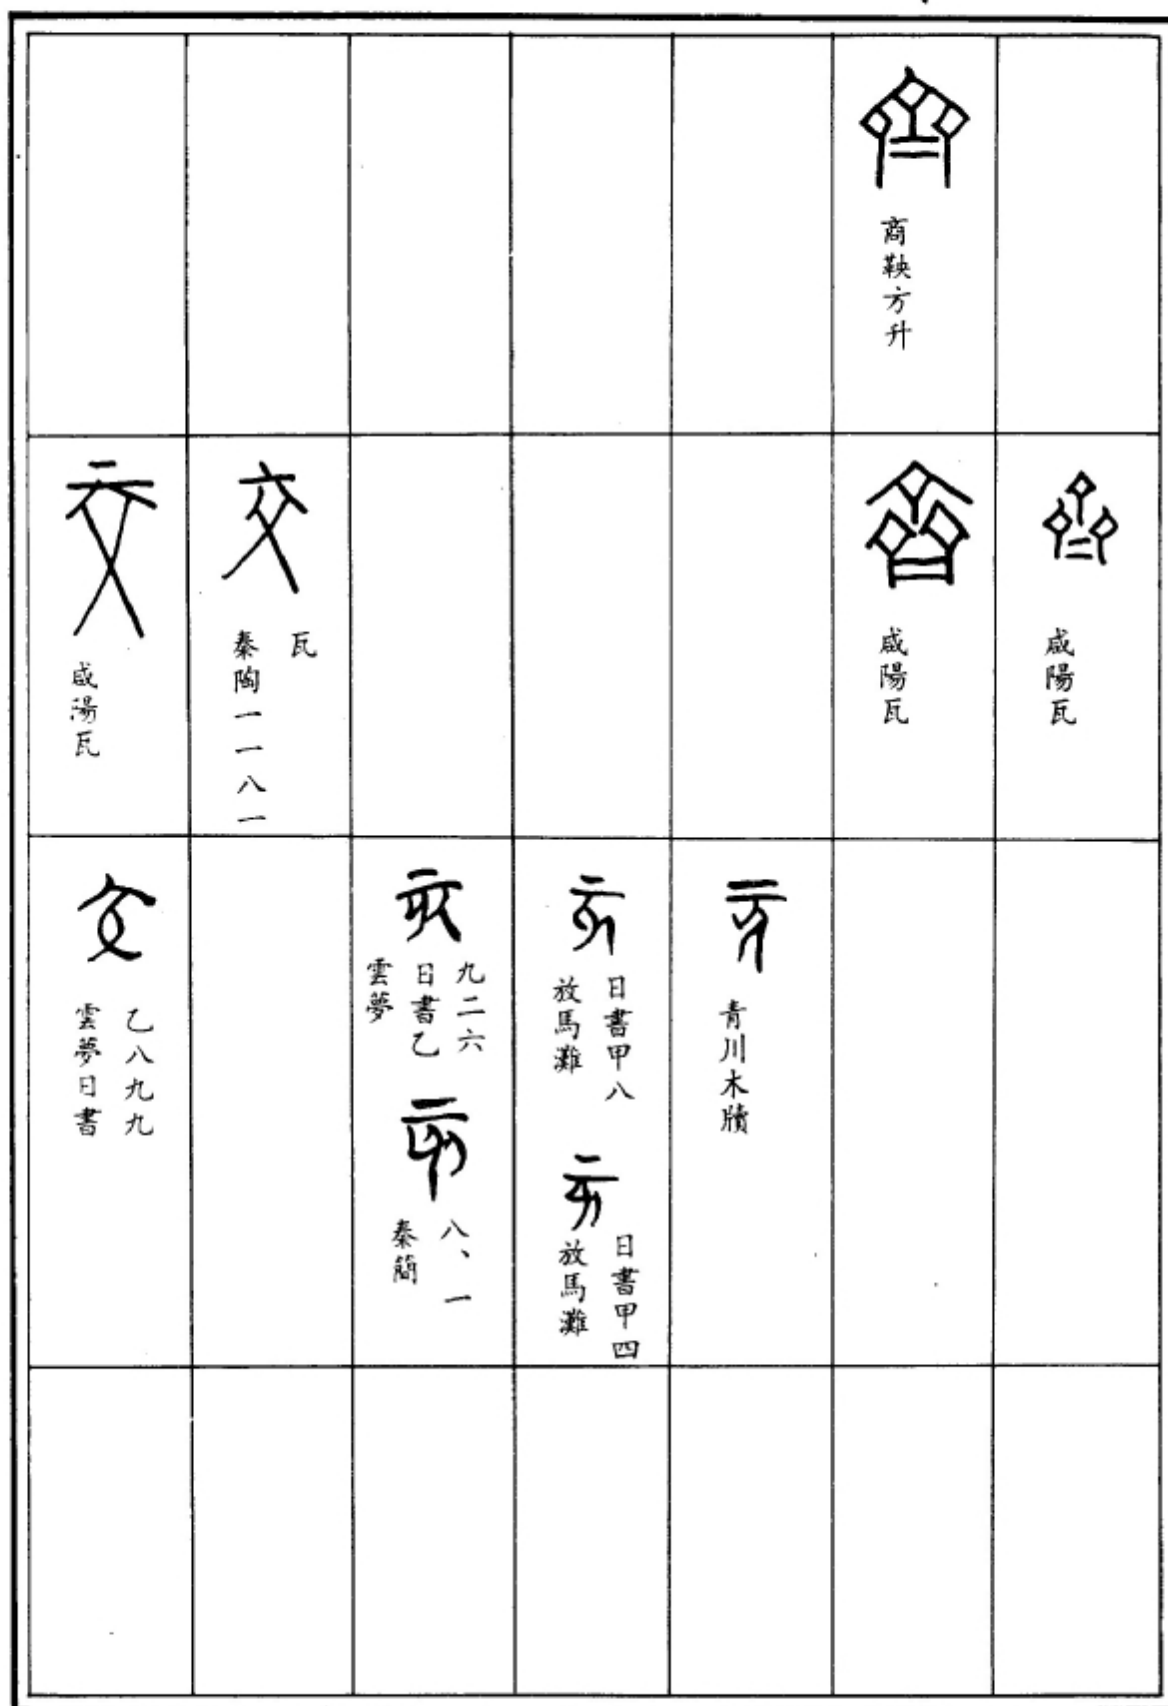 商鞅方升
咸陽瓦
咸陽瓦
秦陶一一八一
瓦
咸湯瓦
青川木牘
放馬灘
日書甲八
放馬灘
日書甲四
雲夢
日書乙
九二六
秦簡
八、一
雲夢日書
乙八九九